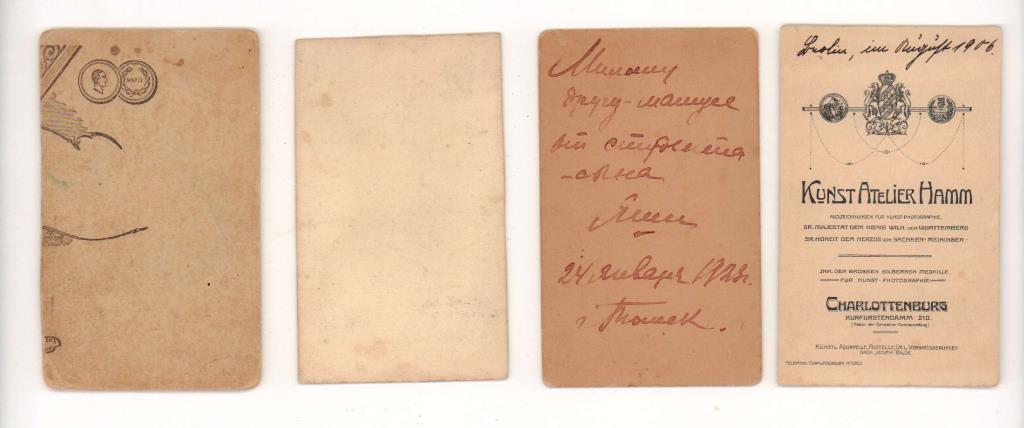 PARIS
Милому
другу-мамусе
от студента
-сына
24 января 1928г.
г. Томск.
Berlin, im August 1906.
KUNST ATELIER HAMM
AUSZEICHNUNGEN FÜR KUNST-PHOTOGRAPHIE.
SR. MAJESTÄT DEM KÖNIG WILH. VON WÜRTTEMBERG
SR. HOHEIT DEM HERZOG VON SACHSEN-MEININGEN
INH. DER GROSSEN SILBERNEN MEDAILLE
FÜR KUNST-PHOTOGRAPHIE
CHARLOTTENBURG
KURFÜRSTENDAMM 210.
KÜNSTL. AQUARELLE, PASTELLE, OEL, VERGRÖSSERUNGEN
NACH JEDEM BILDE.
TELEPHON: CHARLOTTENBURG